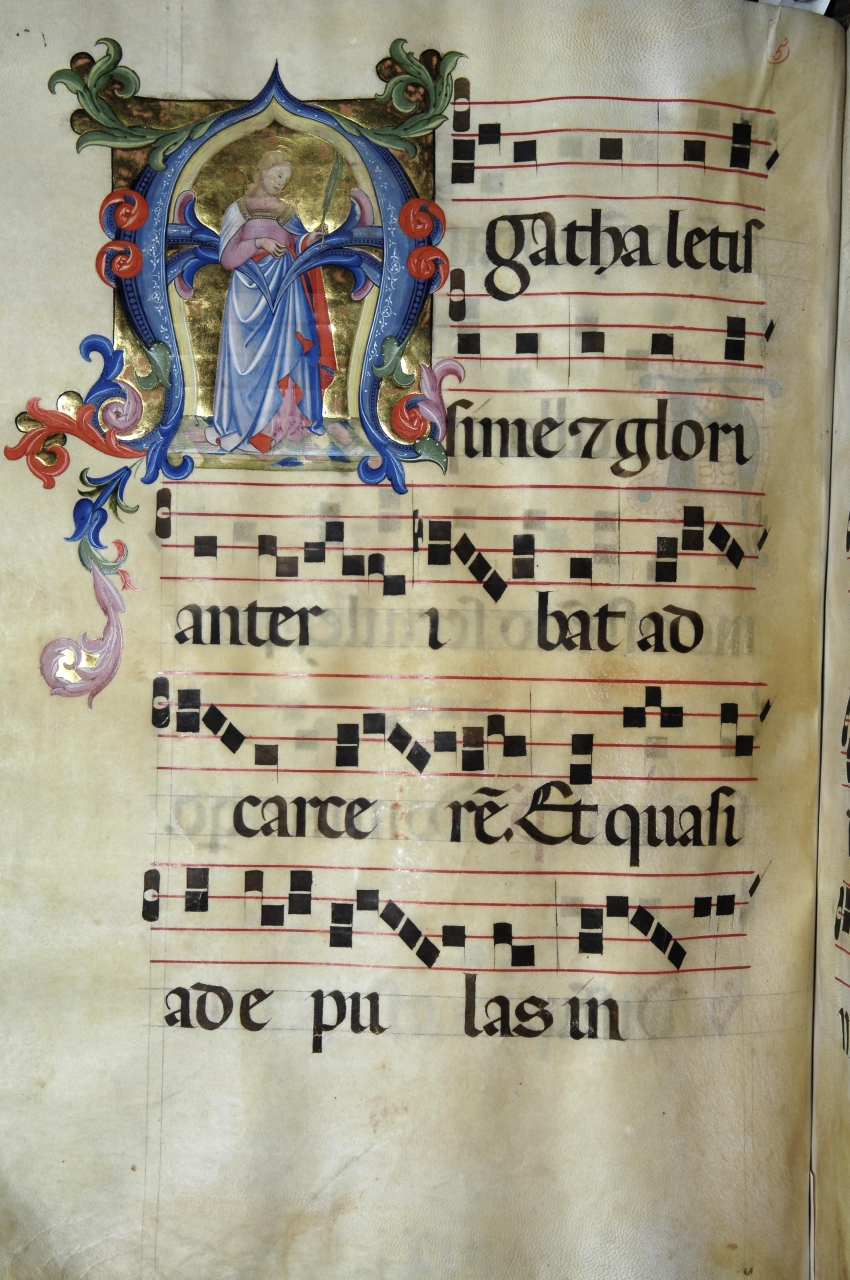 5
Agatha letis
sime ⁊ glori
anter i bat ad
carce rē. Et quasi
ad e pu las in